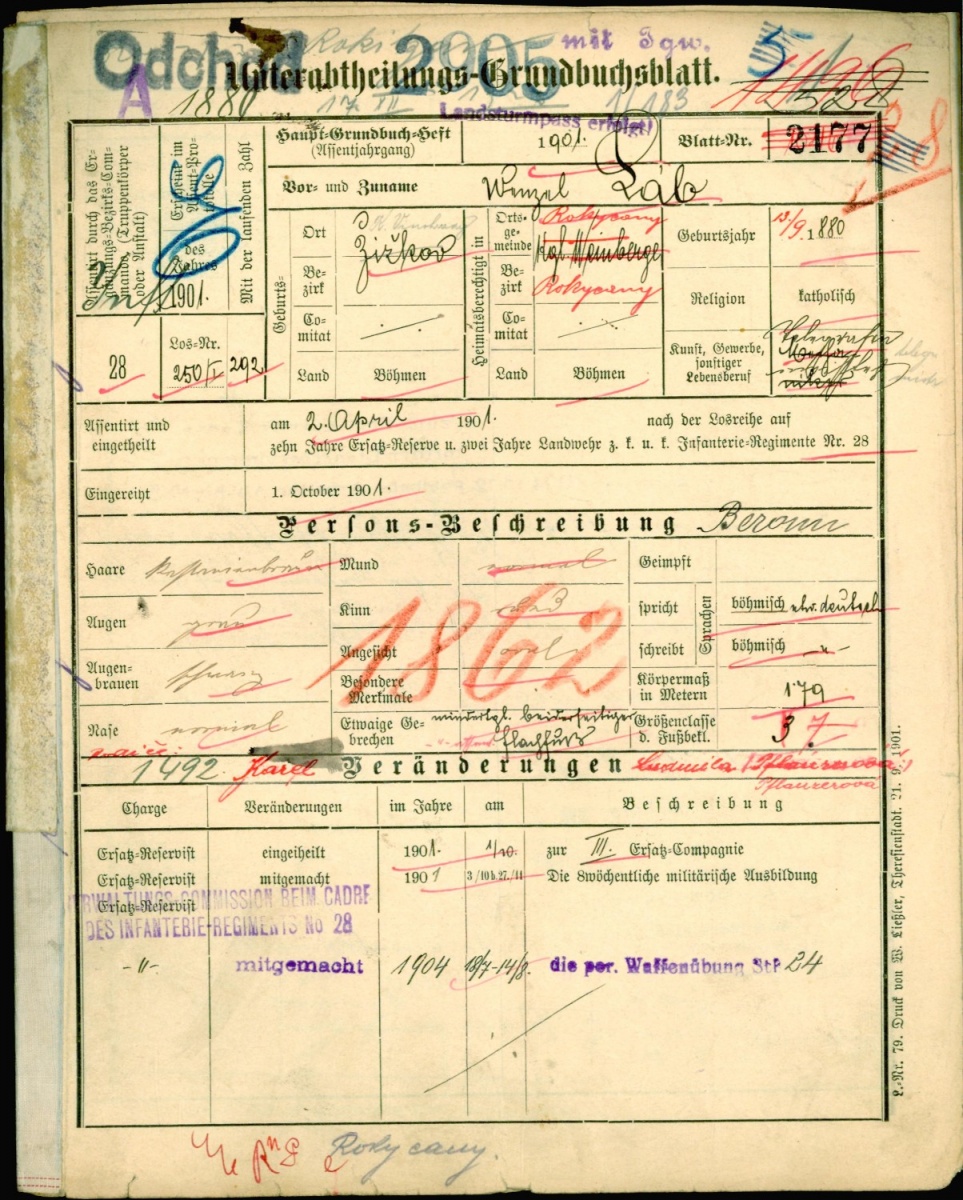 Odchod 2905 mit Zgw.
Unterabtheilungs-Grundbuchsblatt.
A
1880
Landsturmpass erfolgt!
1/183
Haupt-Grundbuch-Heft
(Assentjahrgang)
1901.
Blatt-Nr.
2177
28
Vor- und Zuname
Wenzel Láb
Assentirt durch das Ergänzungs-Bezirks-Commando (Truppenkörper oder Anstalt)
Erscheint im Assent-Protokolle
des Jahres
1901.
Mit der laufenden Zahl
28
Los-Nr.
250/I
292
Geburts-
Ort
Žižkov
Bezirk
Comitat
Land
Böhmen
Heimatsberechtigt in
Ortsgemeinde
Rokycany
Kgl. Weinberge
Bezirk
Rokycany
Comitat
Land
Böhmen
Geburtsjahr
13/9. 1880
Religion
katholisch
Kunst, Gewerbe,
sonstiger
Lebensberuf
Assentirt und
eingetheilt
am 2. April 1901. nach der Losreihe auf
zehn Jahre Ersatz-Reserve u. zwei Jahre Landwehr z. k. u. k. Infanterie-Regimente Nr. 28
Eingereiht
1. October 1901.
Persons-Beschreibung Beroun
Haare kastanienbraun
Augen grau
Augenbrauen schwarz
Nase normal
Mund normal
Kinn rund
Angesicht oval
Besondere
Merkmale
Etwaige Gebrechen
mindergl. beiderseitiger
Flachfuss
1862
Geimpft
Sprachen
spricht böhmisch etw. deutsch
schreibt böhmisch -"-
Körpermaß
in Metern
1·79
Größenclasse
d. Fußbekl.
3 7
1492. Karel Veränderungen Ludmila (Pflanzerová)
Pflanzerová
Charge Veränderungen im Jahre am Beschreibung
Ersatz-Reservist eingetheilt 1901. 1/10. zur III. Ersatz-Compagnie
Ersatz-Reservist mitgemacht 1901 3/10 b. 27./11 Die 8wöchentliche militärische Ausbildung
Ersatz-Reservist
VERWALTUNGS-COMMISSION BEIM CADRE
DES INFANTERIE-REGIMENTS No 28
-"- mitgemacht 1904 18/7-14/8. die per. Waffenübung StP 24
L.-Nr. 79. Druck von W. Ließler, Theresienstadt. 21. 9. 1901.
Rokycany.